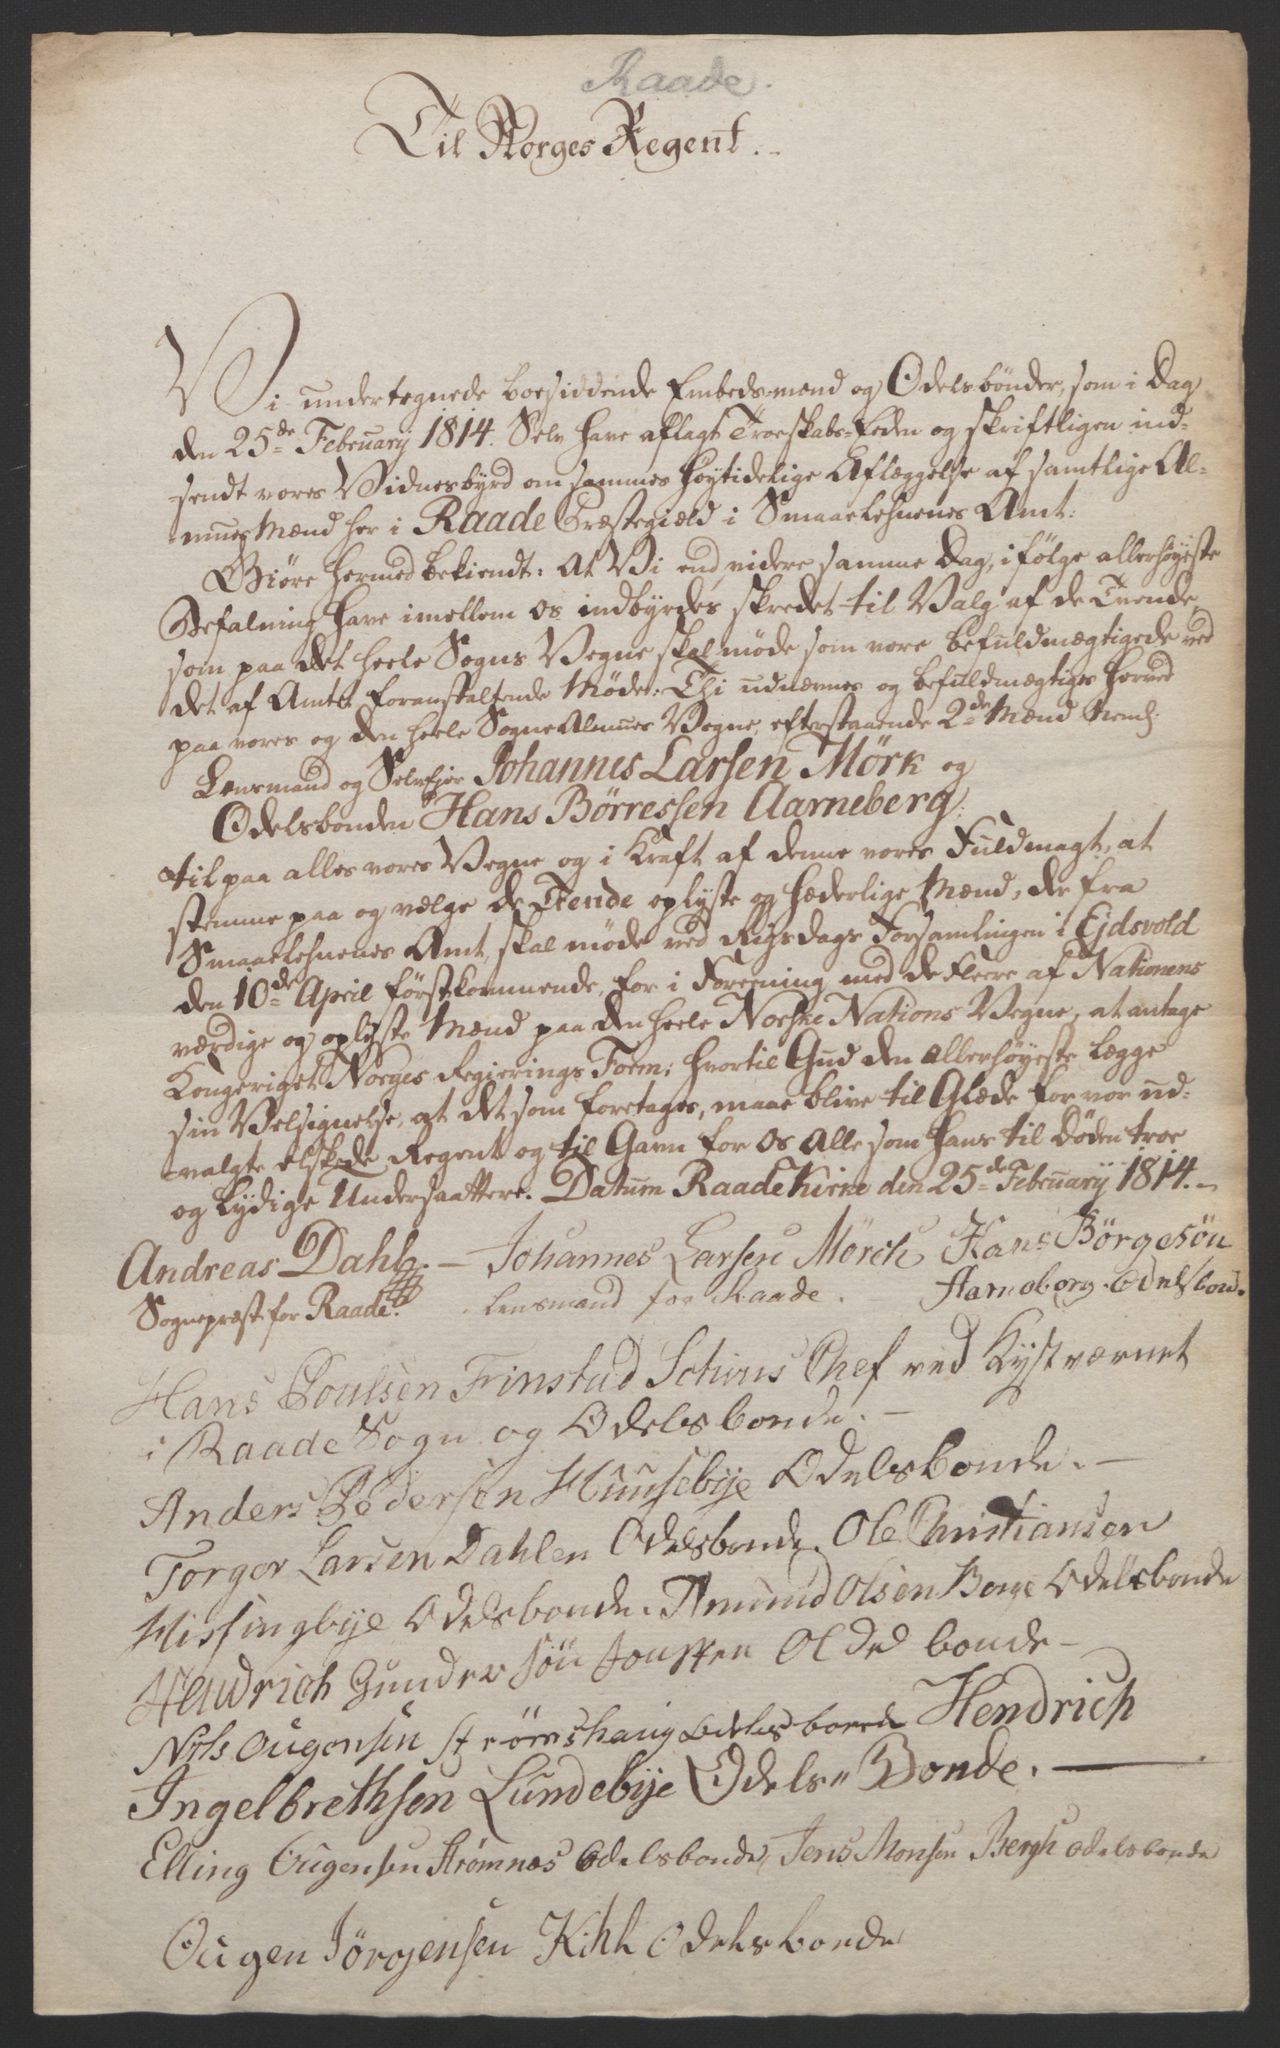 Raade.
Til Norges Regent.
Vi undertegnede boesiddende Embedsmænd og Odelsbönder, som i Dag
den 25de Februarj 1814. Selv have aflagt Troeskabs-Eeden og skriftligen ind-
sendt vores Vidnesbyrd om sammes höytidelige Aflæggelse af samtlige Al-
mues Mænd her i Raade Præstegield i Smaalehnenes Amt:
Giöre hermed bekiendt: At Vi end videre samme Dag, ifölge allerhöyeste
Befalning have imellem os indbyrdes skredet til Valg af de Tvende,
som paa det heele Sogns Vegne skal möde som vore befuldmægtigede ved
det af Amtet foranstaltende Möde: Thi udnævnes og befuldmægtiges herved
paa vores og den heele Sogne Almues Vegne, efterstaaende 2de Mænd Neml:
Lensmand og Selvejer Johannes Larsen Mörk og
Odelsbonden Hans Börressen Aarneberg,
til paa alles vores Vegne og i Kraft af denne vores Fuldmagt, at
stemme paa og vælge de Trende oplyste og hæderlige Mænd, de fra
Smaalehnenes Amt, skal möde ved Rigsdags Forsamlingen i Ejdsvold
den 10de April förstkommende, for i Foreening med de Fleere af Nationens
værdige og oplyste Mænd paa den heele Norske Nations Vegne, at antage
Kongeriget Norges Regierings Form; hvortil Gud den Allerhöyeste lægge
sin Velsignelse, at det som foretages, maae blive til Glæde for vor ud-
valgte elskede Regent og til Gavn for os Alle som hans til Döden troe
og lydige Undersaattere. Datum Raade Kirke den 25de Februarij 1814.
Andreas Dahl. – Johannes Larsen Mörch Hans Börgesön
Sognepræst for Raade. Lensmand for Raade. Harneborg Odelsbond.
Hans Poulsen Finstad Schius Chef ved Kystværnet
i Raade Sogn og Odelsbonde. –
Anders Pedersen Huusebye Odelsbonde. –
Torger Larsen Dahlen Odelsbonde. Ole Christiansen
Hissingbye Odelsbonde. Amund Olsen Borge Odelsbonde
Hendrich Gundersön Odels bonde –
Nils Ougensen Strömshaug Odels bonde Hendrich
Ingelbrethsen Lundebye Odels Bonde. –
Elling Ougensen Strømnæs Odelsbonde, Jens Monsen Bergh Odelsbonde
Ougen Jörgensen Kihl Odelsbonde